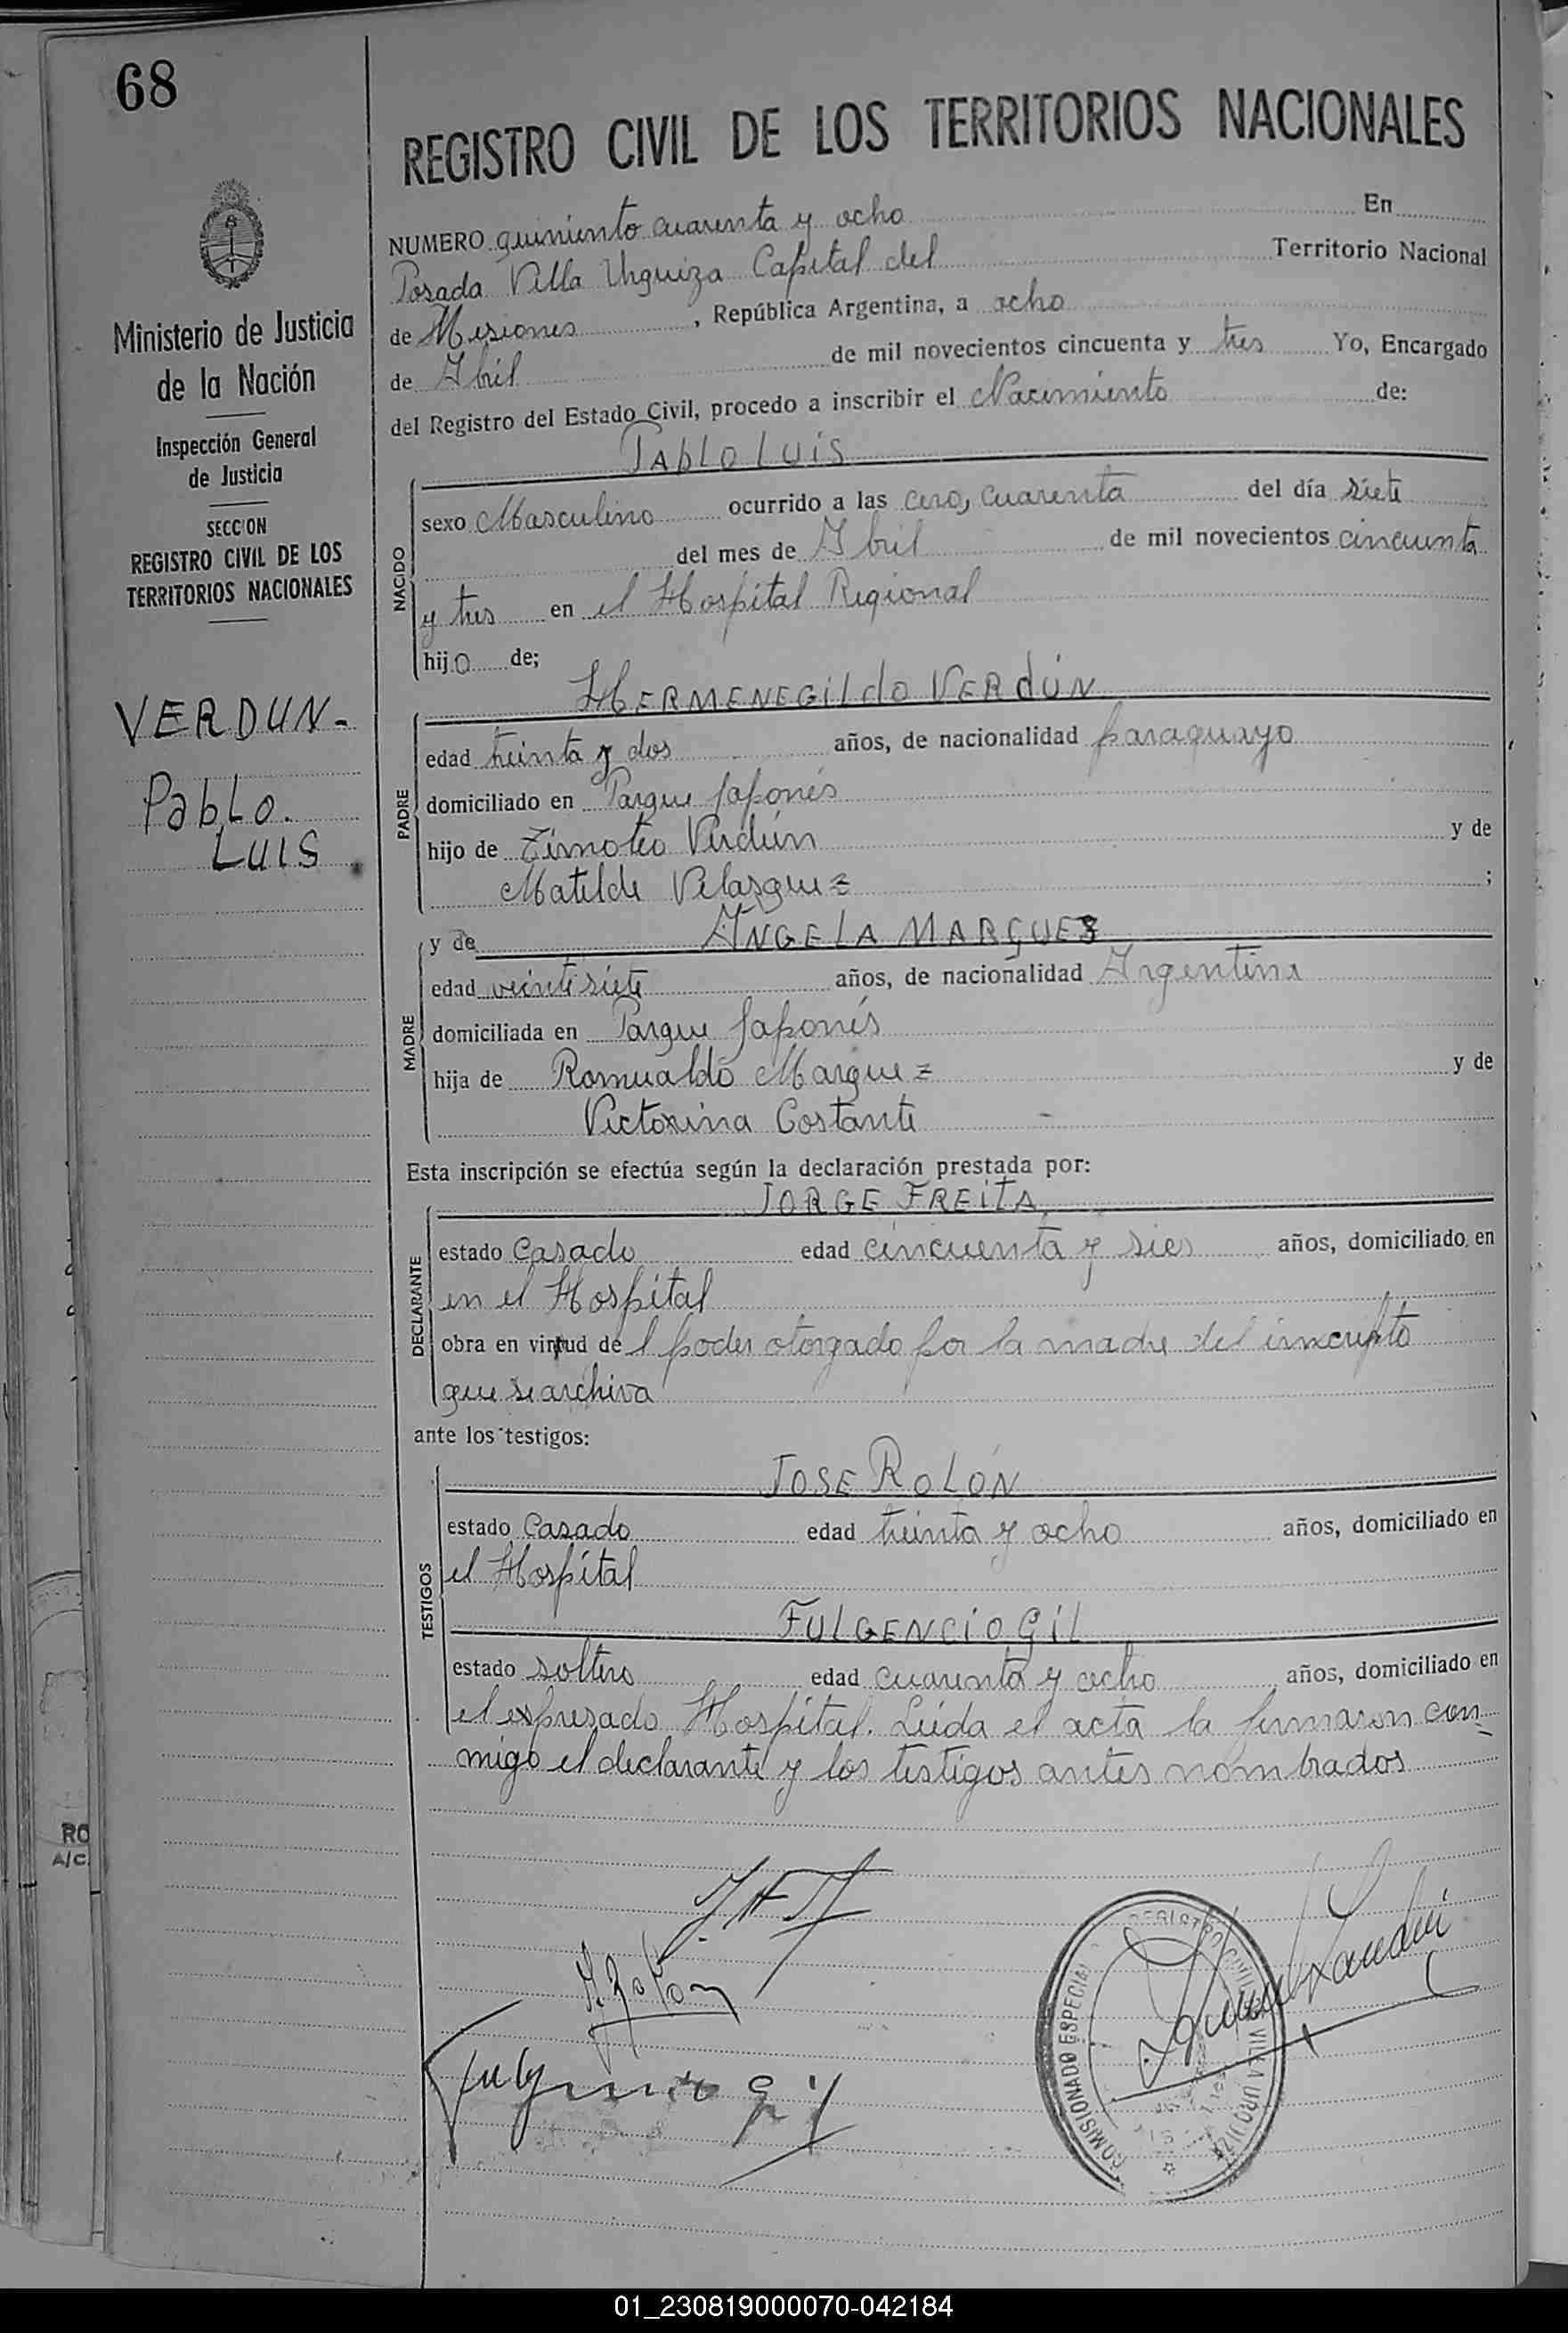 68
REGISTRO CIVIL DE LOS TERRITORIOS NACIONALES
Ministerio de Justicia
de la Nación
Inspección General
de Justicia
SECCION
REGISTRO CIVIL DE LOS
TERRITORIOS NACIONALES
VERDUN-
Pablo.
LUIS
NUMERO quiniento cuarenta y ocho En
Posada Villa Urquiza Capital del Territorio Nacional
de Misiones, República Argentina, a ocho
de Abril de mil novecientos cincuenta y tres Yo, Encargado
del Registro del Estado Civil, procedo a inscribir el Nacimiento de:
PABLO LUIS
NACIDO
sexo Masculino ocurrido a las cero, cuarenta del día siete
del mes de Abril de mil novecientos cincuenta
y tres en el Hospital Regional
hijo de;
HERMENEGILDO VERDÚN
PADRE
edad treinta y dos años, de nacionalidad paraguayo
domiciliado en Parque Japonés
hijo de Timoteo Verdún y de
Matilde Velasquez ;
y de ANGELA MARQUEZ
MADRE
edad veintisiete años, de nacionalidad Argentina
domiciliada en Parque Japonés
hija de Romualdo Marquez y de
Victorina Costante
Esta inscripción se efectúa según la declaración prestada por:
JORGE FREITA
DECLARANTE
estado Casado edad cincuenta y sies años, domiciliado en
en el Hospital
obra en virtud del poder otorgado por la madre del inscripto
que se archiva
ante los testigos:
JOSE ROLÓN
TESTIGOS
estado Casado edad treinta y ocho años, domiciliado en
el Hospital
FULGENCIO GIL
estado soltero edad cuarenta y ocho años, domiciliado en
el expresado Hospital. Leída el acta la firmaron con-
migo el declarante y los testigos antes nombrados
J. Rolon
Fulgencio Gil
REGISTRO CIVIL VILLA URQUIZA
COMISIONADO ESPECIAL
RO
A/C.
01_230819000070-042184